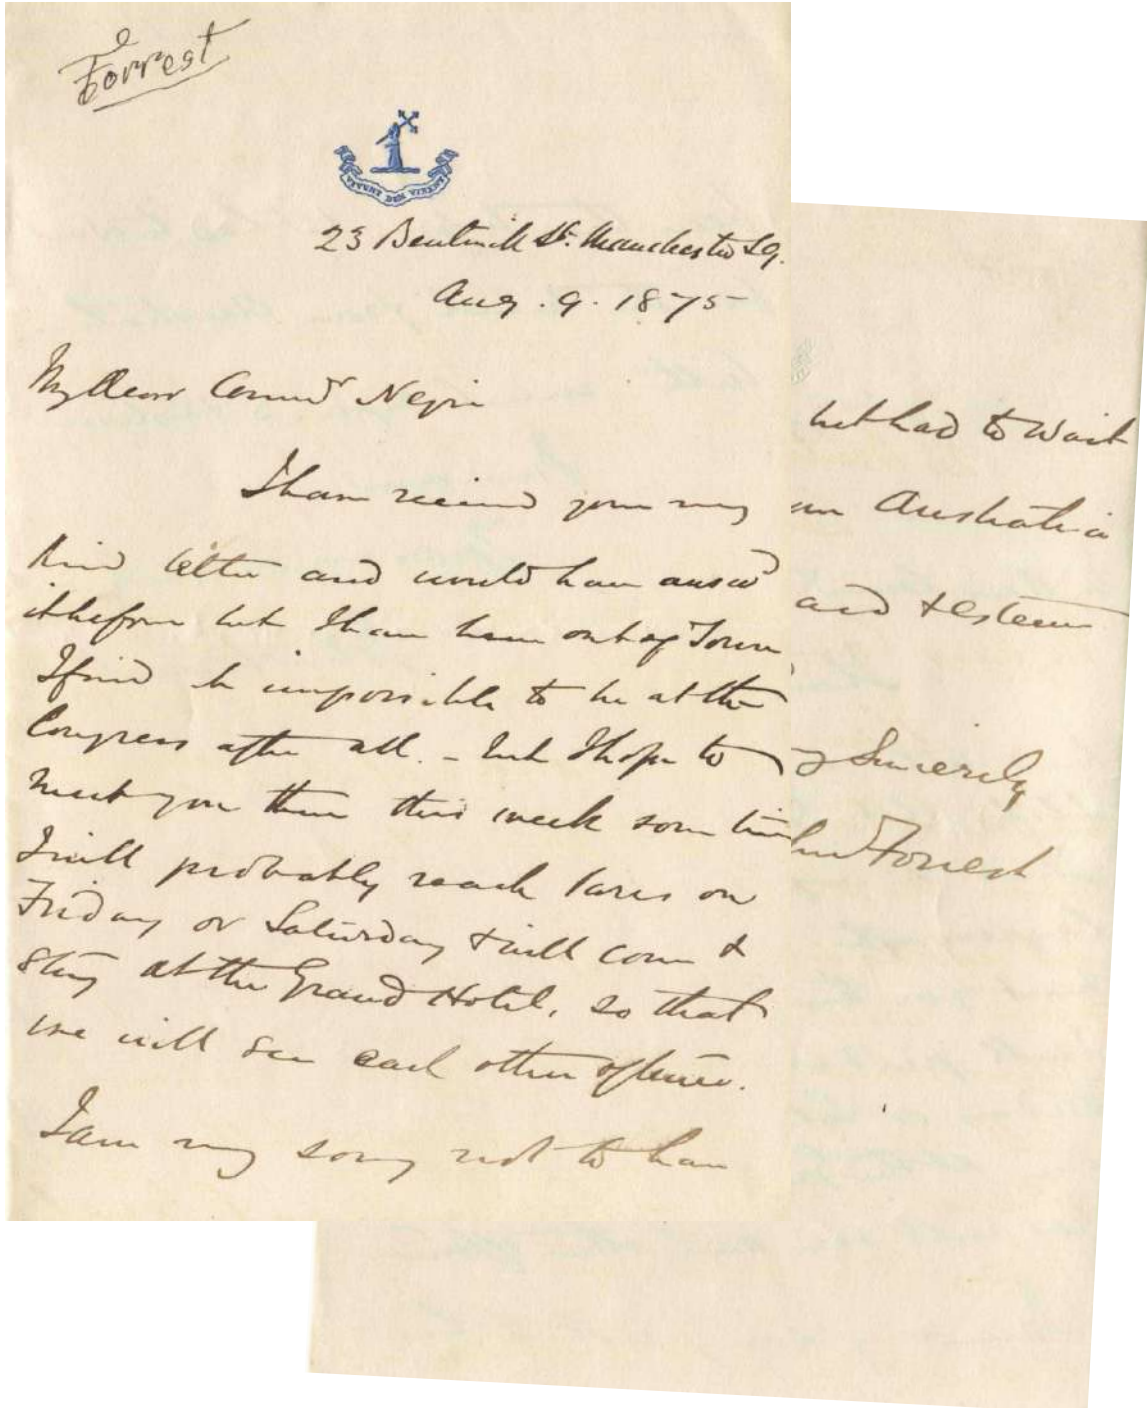 Forrest
VIVUNT DUM VIRENT
23 Bentinck St. Manchester Sq.
Aug. 9. 1875
My Dear Commdr Negri
I have received your very
kind letter and would have answd
it before but I have been out of Town,
I find it impossible to be at the
Congress after all. - but I hope to
meet you there this week some time
I will probably reach Paris on
Friday or Saturday & will come &
stay at the Grand Hotel, so that
we will see each other often.
I am very sorry not to have
but had to wait
Australia
and & esteem
Sincerely
Forrest